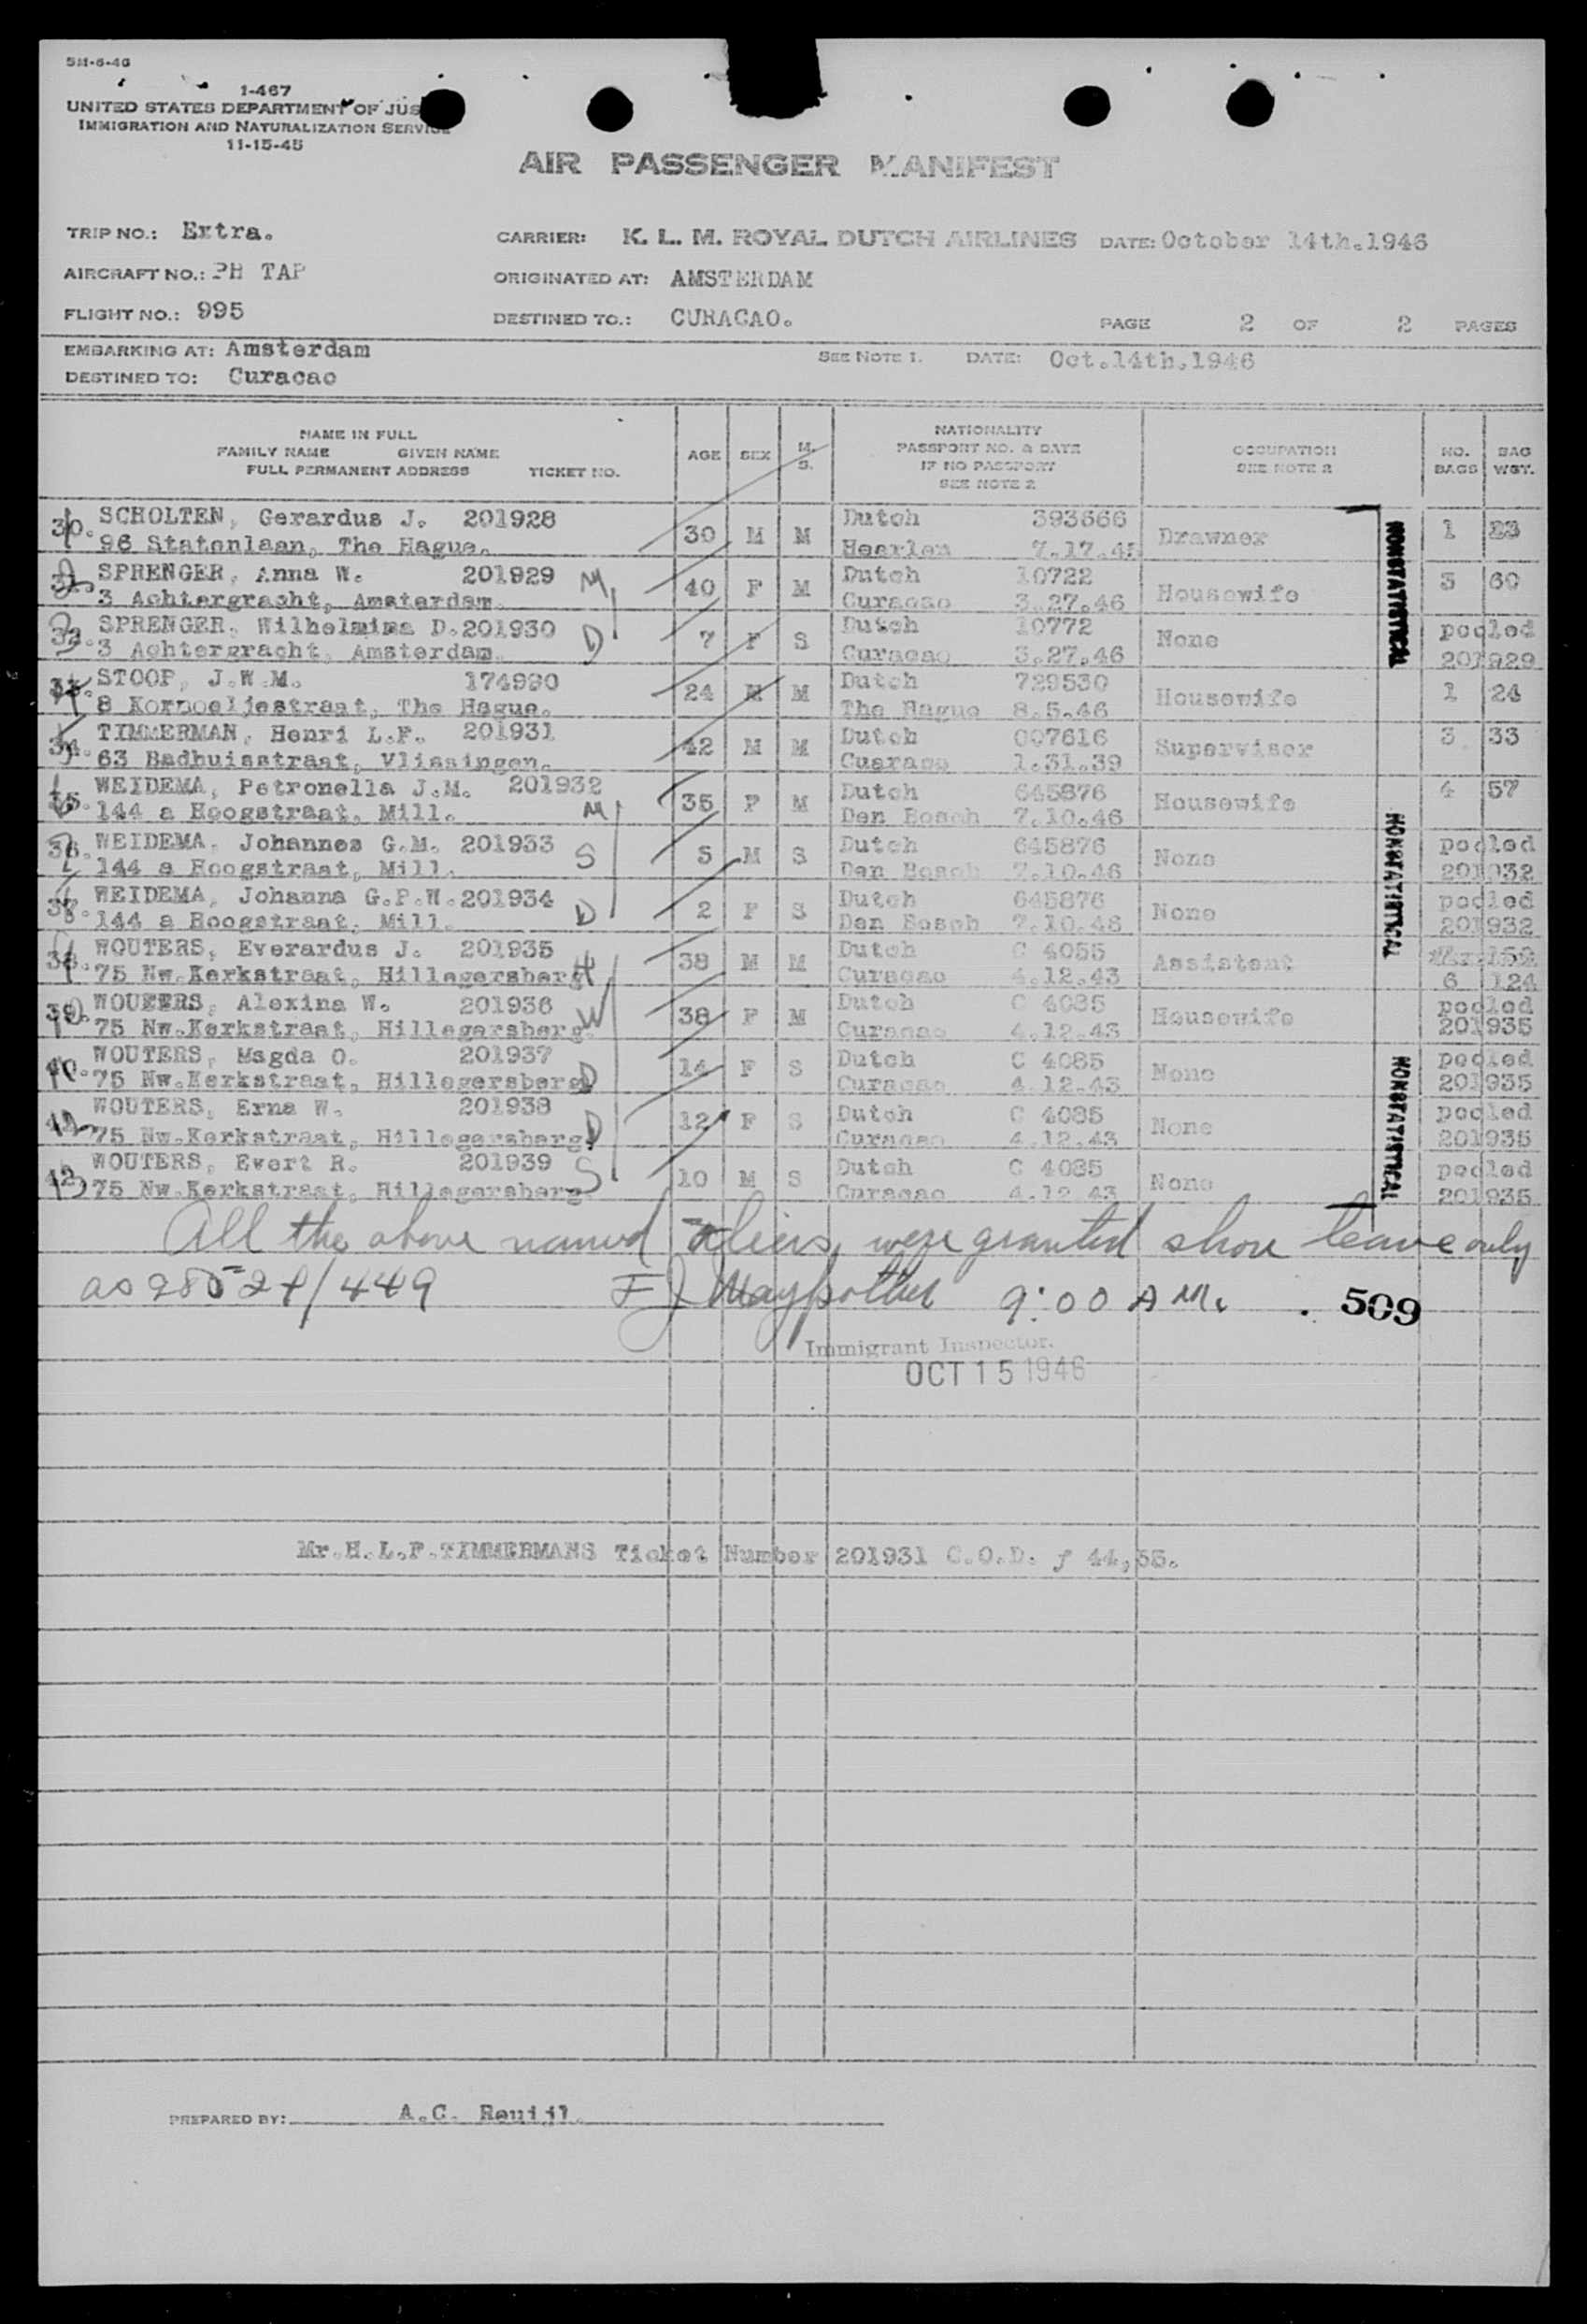 5M-6-46
1-467
UNITED STATES DEPARTMENT OF JUS
IMMIGRATION AND NATURALIZATION SERVICE
11-15-45
AIR PASSENGER MANIFEST
TRIP NO.: Extra. CARRIER: K. L. M. ROYAL DUTCH AIRLINES DATE: October 14th.1946
AIRCRAFT NO.: PH TAP ORIGINATED AT: AMSTERDAM
FLIGHT NO.: 995 DESTINED TO.: CURACAO. PAGE 2 OF 2 PAGES
EMBARKING AT: Amsterdam SEE NOTE 1. DATE: Oct.14th.1946
DESTINED TO: Curacao
NAME IN FULL
FAMILY NAME GIVEN NAME
FULL PERMANENT ADDRESS TICKET NO.
AGE SEX M. S.
NATIONALITY
PASSPORT NO. & DATE
IF NO PASSPORT
SEE NOTE 2
OCCUPATION
SEE NOTE 2
NO. BAGS
BAG WGT.
SCHOLTEN, Gerardus J. 201928 30 M M Dutch 393666 Drawner 1 23
96 Statenlaan, The Hague. Heerlen 7.17.45
SPRENGER, Anna W. 201929 M 40 F M Dutch 10722 Housewife 3 60
3 Achtergracht, Amsterdam. Curacao 3.27.46
SPRENGER, Wilhelmima D.201930 D 7 F S Dutch 10772 None pooled
3 Achtergracht, Amsterdam. Curacao 3.27.46 201929
STOOP, J.W.M. 174990 24 M M Dutch 729530 Housewife 1 24
8 Kornoeljestraat, The Hague. The Hague 8.5.46
TIMMERMAN, Henri L.F. 201931 42 M M Dutch 007616 Supervisor 3 33
63 Badhuisstraat, Vlissingen. Cuaracao 1.31.39
WEIDEMA, Petronella J.M. 201932 M 35 F M Dutch 645876 Housewife 4 57
144 a Hoogstraat, Mill. Den Bosch 7.10.46
WEIDEMA, Johannes G.M. 201933 S 5 M S Dutch 645876 None pooled
144 a Hoogstraat, Mill. Den Bosch 7.10.46 201932
WEIDEMA, Johanna G.P.W.201934 D 2 F S Dutch 645876 None pooled
144 a Hoogstraat, Mill. Den Bosch 7.10.46 201932
WOUTERS, Everardus J. 201935 H 38 M M Dutch C 4055 Assistent
75 Nw.Kerkstraat, Hillegersberg Curacao 4.12.43 6 124
WOUTERS, Alexina W. 201936 W 38 F M Dutch C 4085 Housewife pooled
75 Nw.Kerkstraat, Hillegersberg Curacao 4.12.43 201935
WOUTERS, Magda O. 201937 D 14 F S Dutch C 4085 None pooled
75 Nw.Kerkstraat, Hillegersberg Curacao 4.12.43 201935
WOUTERS, Erna W. 201938 D 12 F S Dutch C 4085 None pooled
75 Nw.Kerkstraat, Hillegersberg. Curacao 4.12.43 201935
WOUTERS, Evert R. 201939 S 10 M S Dutch C 4085 None pooled
75 Nw.Kerkstraat, Hillegersberg Curacao 4.12.43 201935
NONSTATISTICAL
NONSTATISTICAL
NONSTATISTICAL
All the above named aliens were granted shore leave only
9:00 AM. 509
Immigrant Inspector.
OCT 15 1946
Mr.H.L.F.TIMMERMANS Ticket Number 201931 C.O.D. f 44,55.
PREPARED BY: A.C. Reuijl.